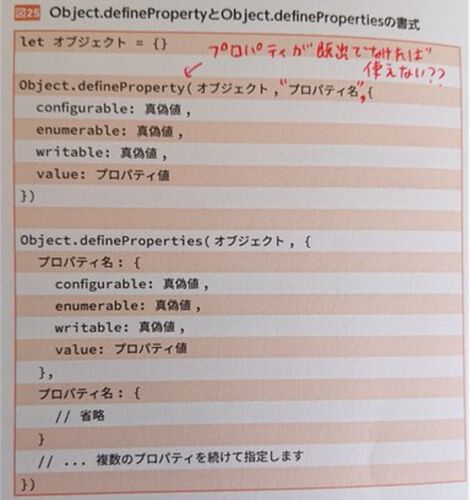 図25 Object.definePropertyとObject.definePropertiesの書式
let オブジェクト = {}
プロパティが既出でなければ
使えない??
Object.defineProperty(オブジェクト,"プロパティ名",{
configurable: 真偽値,
enumerable: 真偽値,
writable: 真偽値,
value: プロパティ値
})
Object.defineProperties(オブジェクト, {
プロパティ名: {
configurable: 真偽値,
enumerable: 真偽値,
writable: 真偽値,
value: プロパティ値
},
プロパティ名: {
// 省略
}
// ... 複数のプロパティを続けて指定します
})